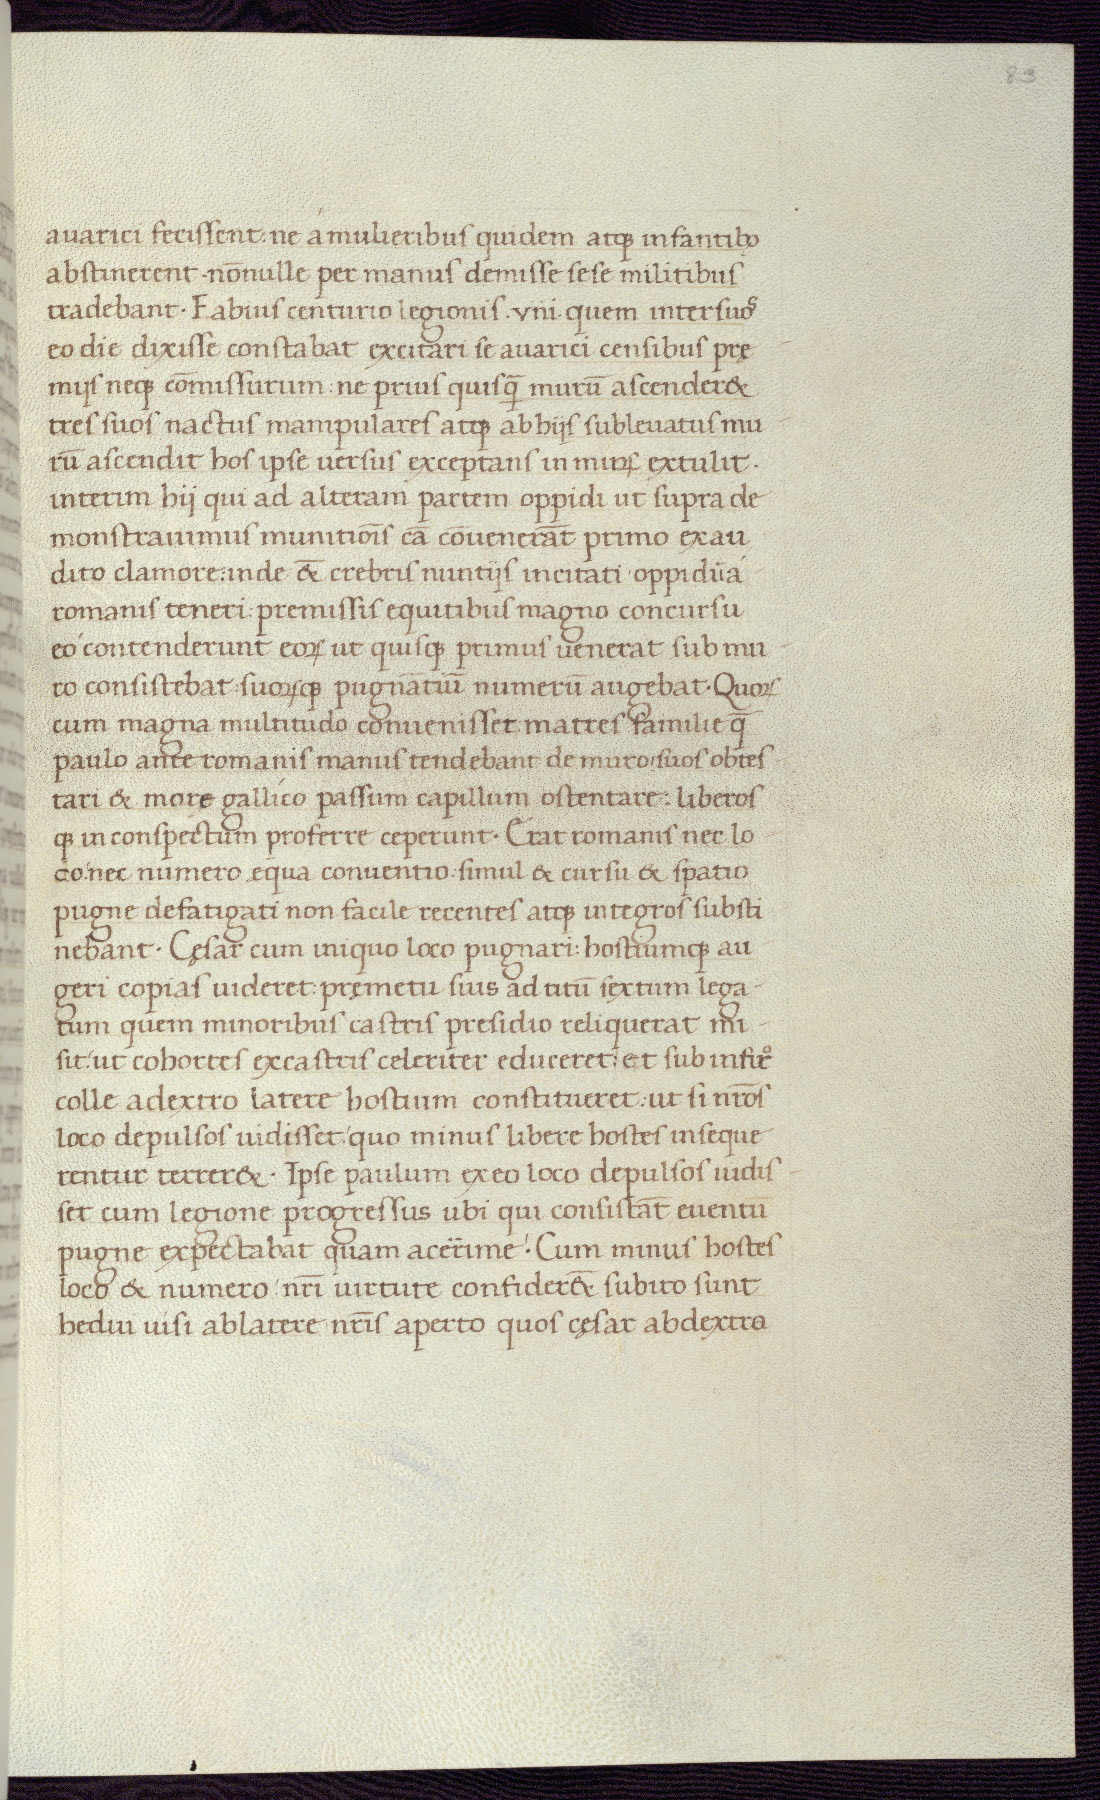 83
auarici fecissent: ne á mulieribus quidem atqꝫ infantibꝰ
abstinerent · nōnulle per manus demisse sese militibus
tradebant · Fabius centurio legionis · vııı · quem inter suos
eo die dixisse constabat excitari se auarici censibus prę
mijs neqꝫ cōmissurum : ne prius quisq̄ murū ascender&
tres suos nactus manipulares atqꝫ ab hijs subleuatus mu
rū ascendit hos ipse uersus exceptans in murꝝ extulit ·
interim hij qui ad alteram partem oppidi ut supra de
monstrauimus munitiōis cā cōuenerāt primo exau
dito clamore: inde &̄ crebris nuntijs incitati oppidū á
romanis teneri : premissis equitibus magno concursu
eó contenderunt eoꝝ ut quisqꝫ primus uenerat sub mu
ro consistebat : suoꝝqꝫ pugnātiū numerū augebat · Quoꝝ
cum magna multitudo conuenisset matres familie q̄
paulo ante romanis manus tendebant de muro: suos obtes
tari & more gallico passum capillum ostentare : liberos
qꝫ in conspectum proferre ceperunt · Erat romanis nec lo
co: nec numero ęqua conuentio : simul & cursu & spatio
pugne defatigati non facile recentes atqꝫ integros susti
nebant · Cęsar cum iniquo loco pugnari : hostiumqꝫ au
geri copias uideret : pręmetu suis ad titū sextum lega-
tum quem minoribus castris presidio reliquerat mi-
sit: ut cohortes ex castris celeriter educeret: et sub infirͦ
colle adextro latere hostium constitueret : ut si nr̄os
loco depulsos uidisset: quo minus libere hostes inseque
rentur terrer& · Ipse paulum ex eo loco depulsos uidis
set cum legione progressus ubi qui consistāt euentū
pugne expectabat quam acer̄ime · Cum minus hostes
loco & numero: nr̄i uirtute confider&̄ subito sunt
hedui uisi ablatere nr̄is aperto quos cęsar abdextra